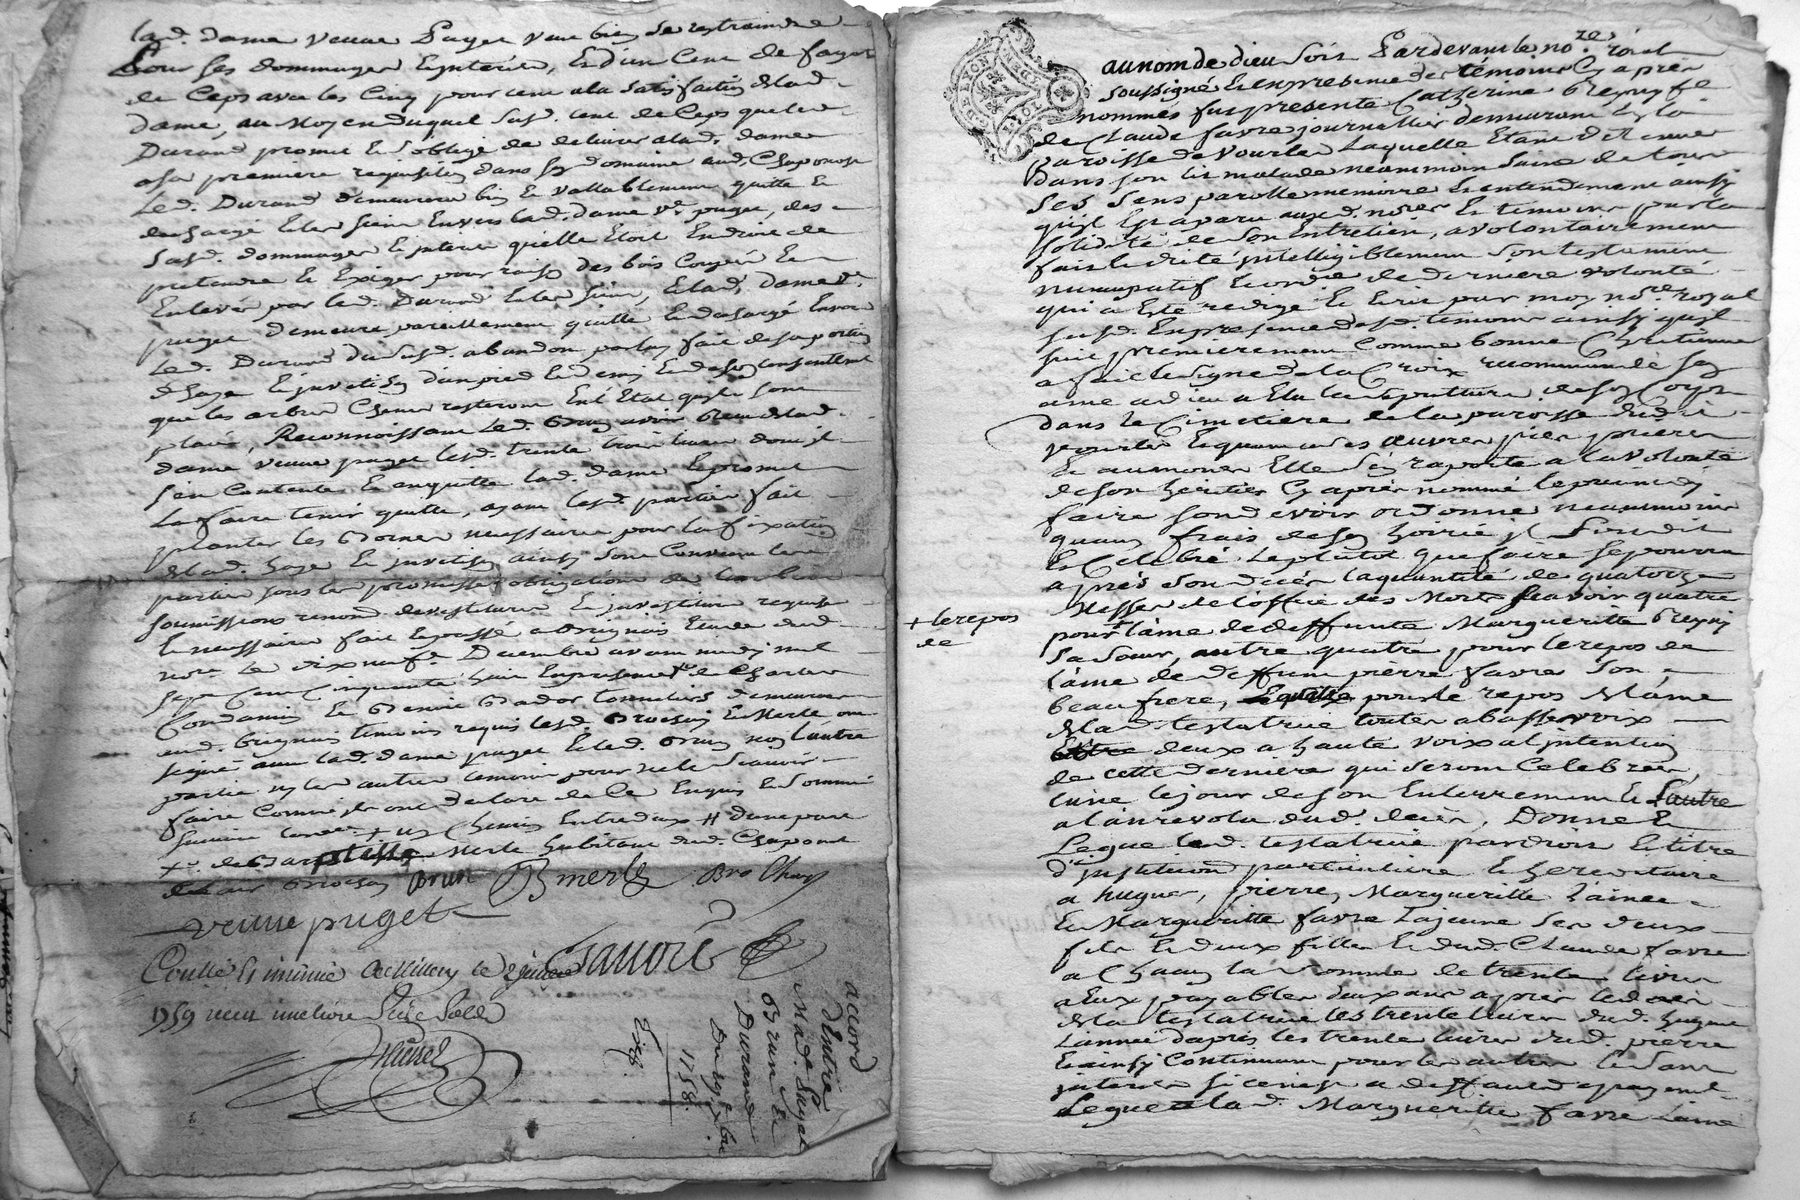 lad. dame veuve Puget veut bien se restraindre
Pour ses dommages Interets, à d'un Cent de fagot
de Ceps avec les Cinq pour cent a la satisfaction de lad.
dame, au moyen duquel susd. cent de Ceps que led.
Durand promet et s'oblige de delivrer a lad. dame
a sa premiere requisition dans son domaine aud. Chaponost
Led. Durand demeurera bien et vallablement quitte et
dechargé et les siens Envers lad. dame ve. puget, des
susd. dommages et interets qu'elle Etoit En droit de
pretendre et Exiger pour raison des bois Coupés et
Enlevés par led. Durand et les siens, et lad. dame ve.
puget demeure pareillement quitte et dechargé Envers
Led. Durand du susd. abandon par luy fait de sa portion
d'haye et
que les arbres Chenes resteront En l'Etat qu'ils sont
plantés, Reconnoissant led. Brun avoir Receu de lad.
dame veuve puget lesd. trente trois livres dont il
s'en Contente et en quitte lad. dame et promet
La faire tenir quitte, ayant lesd. parties fait
planter les Bornes necessaires pour la fixation
de lad. haye et ainsy sont Convenu les
parties sous les promesses obligations de leurs biens
soumissions renon. devestitures et investiture requises
et necessaires fait et passé a Brignais Etude dud.
nore. le dix neuf Decembre avant midy mil
sept Cent Cinquante huit En presence de Charles
Condamin et Benoit Bador tonneliers demeurants
aud. Brignais temoins requis lesd. Brochay et Merle ont
signé avec lad. dame puget et led. Brun non l'autre
partie ny les autres temoins pour ne le sçavoir
faire Comme ils ont declaré de Ce Enquis et Sommé
Chemin Entredeux # d'une part
Merle habitant dud. Chaponost
Brun B merle Bro Chay
veuve puget
Conllé Et insinué a Millery le 2 janvier
1759 receu une livre Seize Sols
accord
d'Entre
Mad. Puget
Brun Et
Durand
Du 19 xbre
1758.
au nom de dieu soit Pardevant le nore. roial
soussigné et en presence des témoins Cy apres
nommés fut presente Catherine Bregny fe.
de Claude favre journallier demeurant En la
paroisse de Vourles Laquelle Etant detenue
dans son lit malade neanmoins saine de tous
ses sens parolle memoire et entendement ainsy
qu'il Est aparu aud. nore. et temoins par la
solidité de son Entretien, a volontairement
fait et dicté intelligiblement son testament
nuncupatif et ordce. de derniere volonté
qui a Esté redigé et Ecrit par moy nore. royal
susd. En presence desd. temoins ainsy qu'il
suit premierement Comme bonne Chretienne
a fait le signe de la Croix recommandé son
ame a dieu a Elu la sepulture de son Corps
dans le Cimetiere de la paroisse dud.
vourles et quant a ses œuvres pies prieres
et aumones Elle s'en raporte a la volonté
de son heritier Cy après nommé le priant d'y
faire son devoir ordonne neanmoins
qu'aux frais de son hoirie il soit dit
et Celebré le plutot que faire se pourra
après son décès la quantité de quatorze
Messes de l'office des Morts sçavoir quatre
pour + l'ame de deffunte Margueritte Bregny
sa sœur, autre quatre pour le repos de
l'ame de deffunt pierre favre son
beau frere, Equatre pour le repos de l'ame
de lad. testatrice toutes a basse voix
Et les deux a haute voix a l'intention
de cette derniere qui seront Celebrées
l'une le jour de son Enterrement et l'autre
a l'an revolu dud. décès, Donne et
Legue lad. testatrice par droit et titre
d'institution particuliere et hereditaire
a hugues, pierre, Margueritte L'ainée
et Margueritte favre La jeune ses deux
fils et deux filles et dud. Claude favre
a Chacun la somme de trente livres
a Eux payables deux ans après led. décès
de la testatrice les trente livres dud. hugue
L'année d'après les trente livres dud. pierre
Et ainsy Continuant pour les autres le sans
interets si ce n'est a deffaut de payemt.
Legue a lad. Margueritte favre L'ainé
+ le repos
de